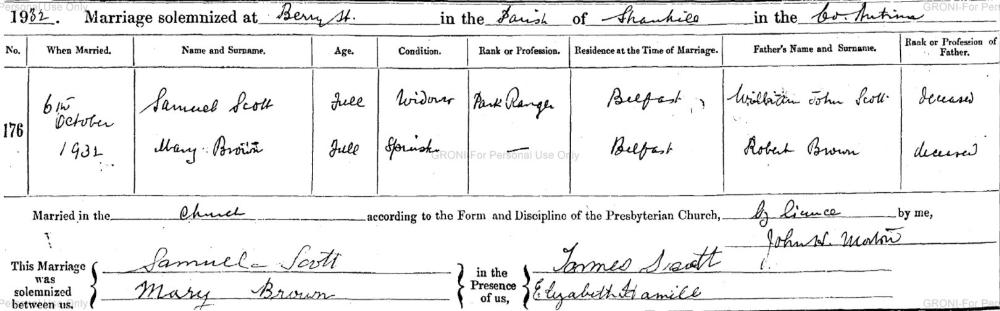 1932. Marriage solemnized at Berry St. in the Parish of Shankill in the Co. Antrim
No. When Married. Name and Surname. Age. Condition. Rank or Profession. Residence at the Time of Marriage. Father's Name and Surname. Rank or Profession of Father.
176 6th October 1932 Samuel Scott Full Widower Park Ranger Belfast John Scott deceased
Mary Brown Full Spinster — Belfast Robert Brown deceased
GRONI-For Personal Use Only
Married in the Church according to the Form and Discipline of the Presbyterian Church, by licence by me,
John H. Morton
This Marriage was solemnized between us, Samuel Scott in the Presence of us, James Scott
Mary Brown Elizabeth Hamill
GRONI-For Per